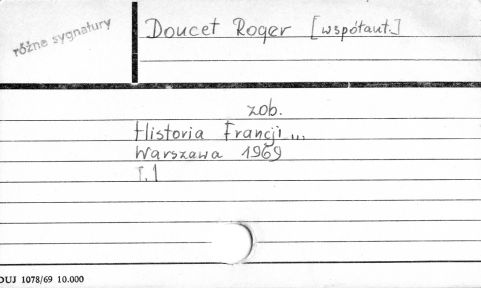 różne sygnatury
Doucet Roger [współaut.]
zob.
Historia Francji ...
Warszawa 1969
T.1
DUJ 1078/69 10.000